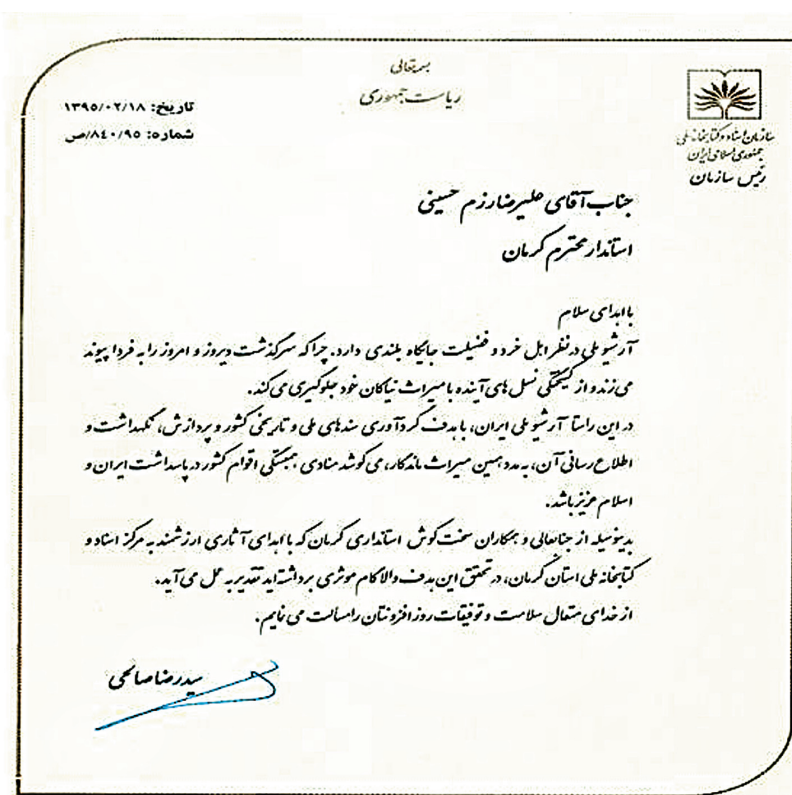 بسمه تعالی
ریاست جمهوری
تاریخ: ۱۳۹۵/۰۲/۱۸
شماره: ۸۴۰/۹۵/ص
سازمان اسناد و کتابخانه ملی
جمهوری اسلامی ایران
رئیس سازمان
جناب آقای علیرضا رزم حسینی
استاندار محترم کرمان
با اهدای سلام
آرشیو ملی در نظر اهل خرد و فضیلت جایگاه بلندی دارد. چرا که سرگذشت دیروز و امروز را به فردا پیوند
می زند و از گسیختگی نسل های آینده با میراث نیاکان خود جلوگیری می کند.
در این راستا آرشیو ملی ایران، با هدف گردآوری سندهای ملی و تاریخی کشور و پردازش، نگهداشت و
اطلاع رسانی آن، به مدد همین میراث ماندگار، می کوشد منادی همبستگی اقوام کشور در پاسداشت ایران و
اسلام عزیز باشد.
بدینوسیله از جنابعالی و همکاران سخت کوش استانداری کرمان که با اهدای آثاری ارزشمند به مرکز اسناد و
کتابخانه ملی استان کرمان، در تحقق این هدف والا گام موثری برداشته اید تقدیر به عمل می آید.
از خدای متعال سلامت و توفیقات روز افزونتان را مسألت می نمایم.
سیدرضا صالحی